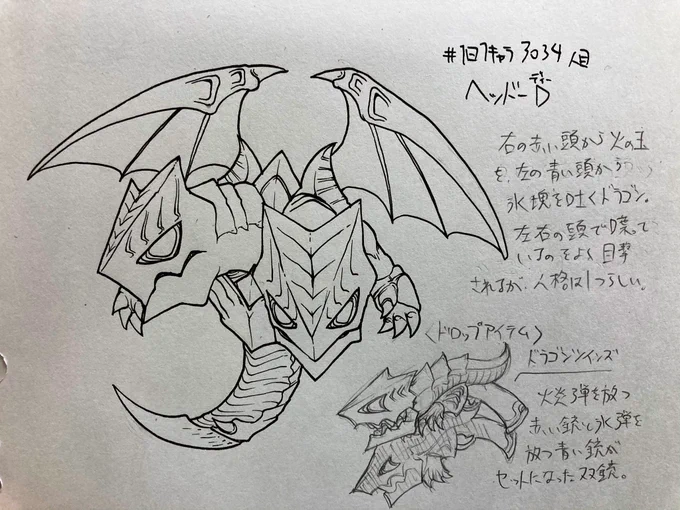 #1日1キャラ 3034人目
ヘッドーD
ディー
右の赤い頭から火の玉
を、左の青い頭から
氷塊を吐くドラゴン。
左右の頭で喋って
いるのをよく目撃
されるが、人格は1つらしい。
〈ドロップアイテム〉
ドラゴンツインズ
火炎弾を放つ
赤い銃と氷弾を
放つ青い銃が
セットになった双銃。